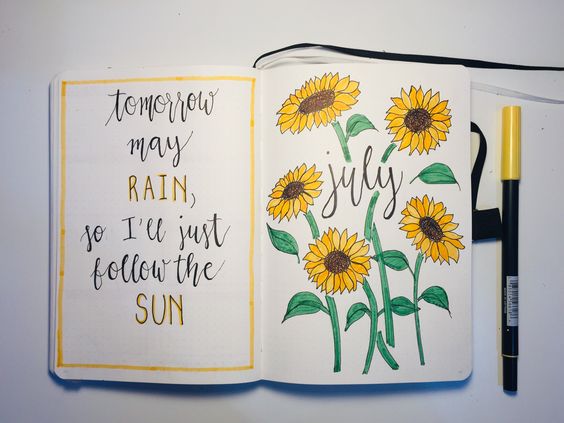 tomorrow
may
RAIN,
so I'll just
follow the
SUN
july